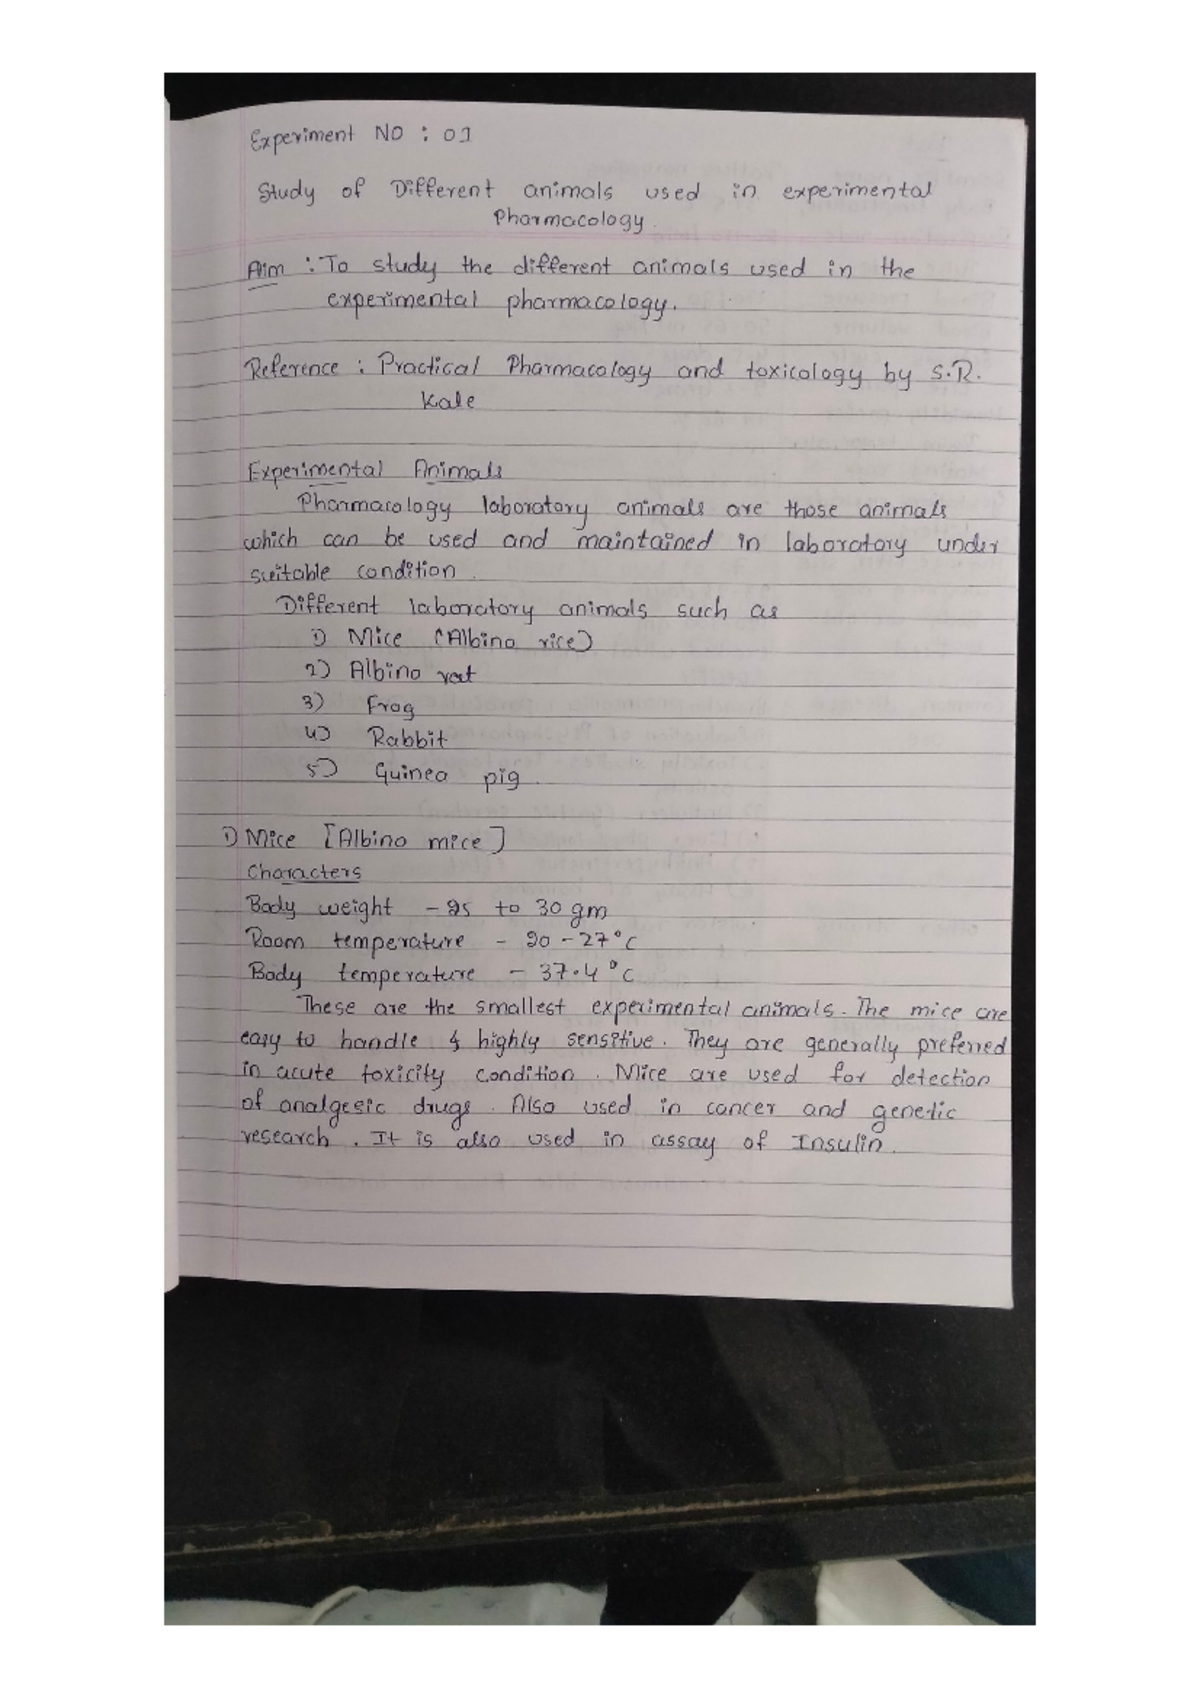 Experiment NO : 01
Study of Different animals used in experimental
Pharmacology.
Aim : To study the different animals used in the
experimental pharmacology.
Reference : Practical Pharmacology and toxicology by S.R.
Kale
Experimental Animals
Pharmacology laboratory animals are those animals
which can be used and maintained in laboratory under
suitable condition.
Different laboratory animals such as
1) Mice (Albino rice)
2) Albino rat
3) Frog
4) Rabbit
5) Guinea pig.
1) Mice [Albino mice]
Characters
Body weight - 25 to 30 gm
Room temperature - 20 - 27°C
Body temperature - 37.4°C
These are the smallest experimental animals. The mice are
easy to handle & highly sensitive. They are generally preferred
in acute toxicity condition. Mice are used for detection
of analgesic drugs. Also used in cancer and genetic
research. It is also used in assay of Insulin.